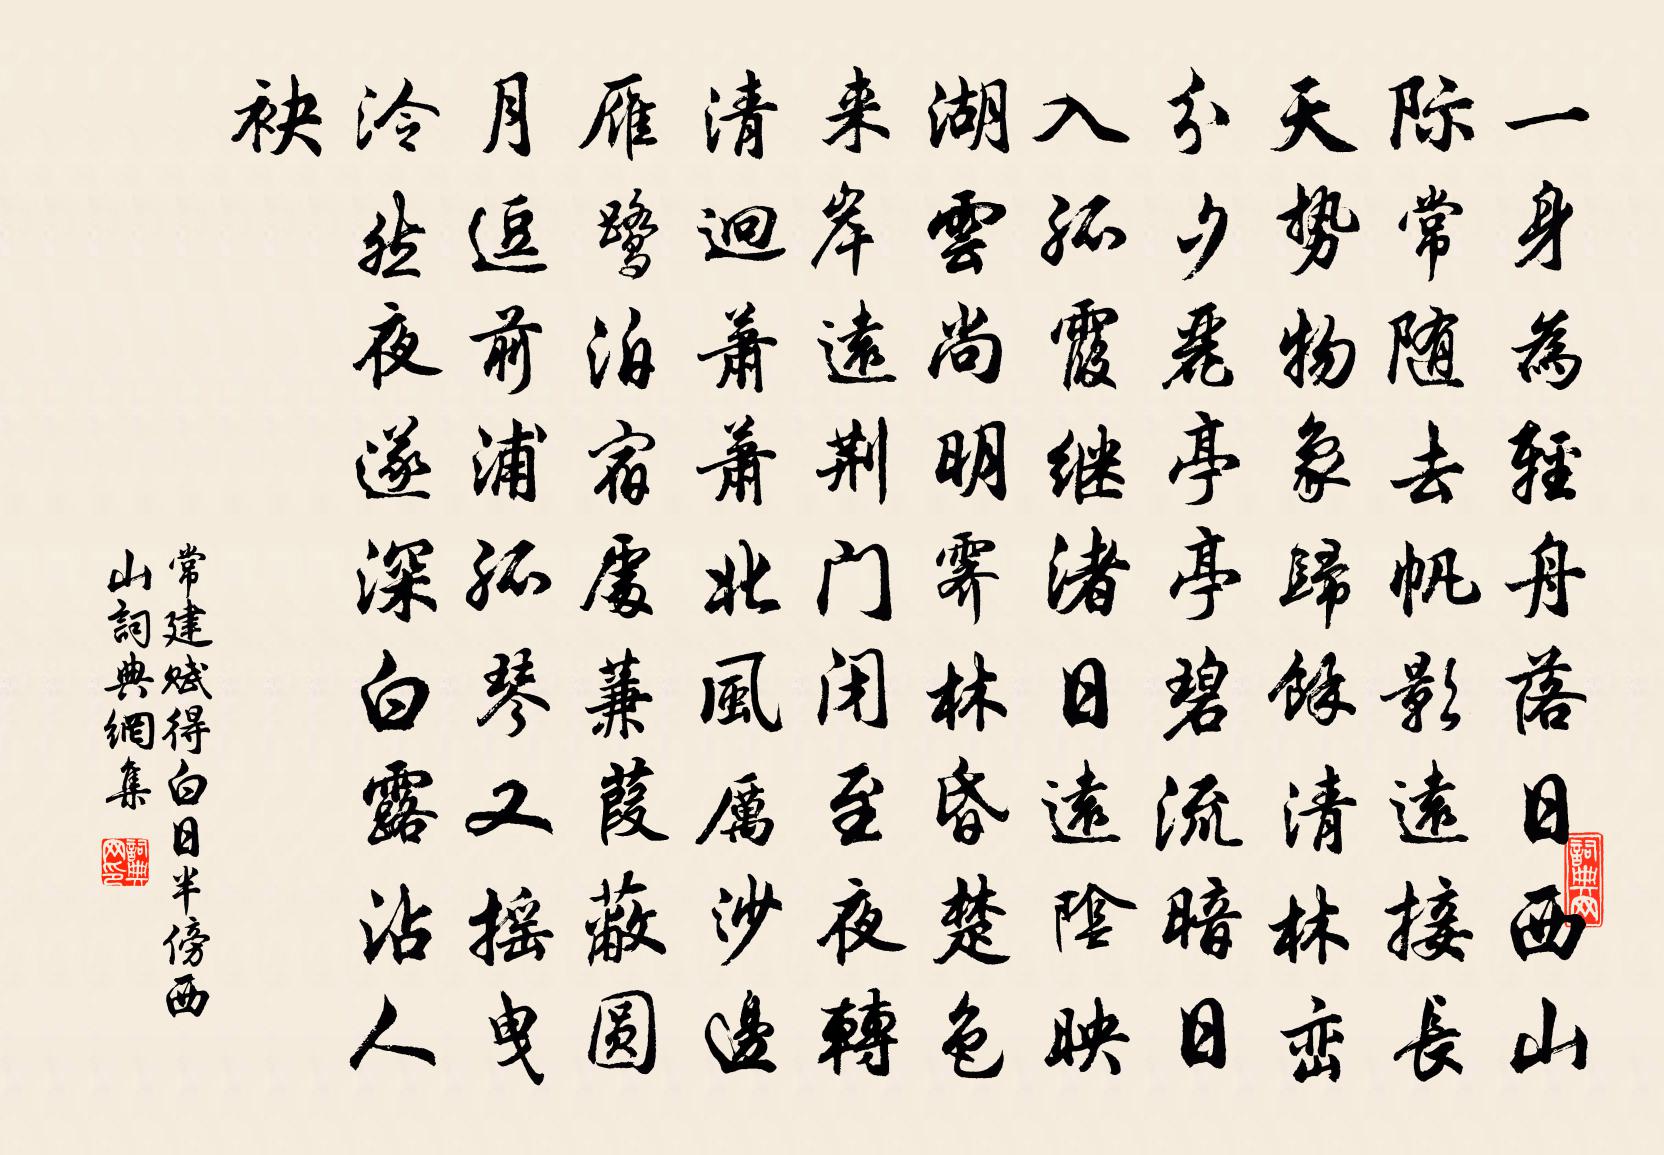 一身為輕舟落日西山
际常随去帆影遠接長
天勢物象歸餘清林巒
分夕麗亭亭碧流暗日
入孤霞继渚日遠陰映
湖雲尚明霽林昏楚色
来岸遠荆门闭至夜轉
清迥萧萧北風厲沙邊
雁鹭泊宿處蒹葭蔽圆
月逗前浦孤琴又摇曳
泠然夜遂深白露沾人
袂
常建賦得白日半傍西
山詞典網集
詞典网
詞典网印